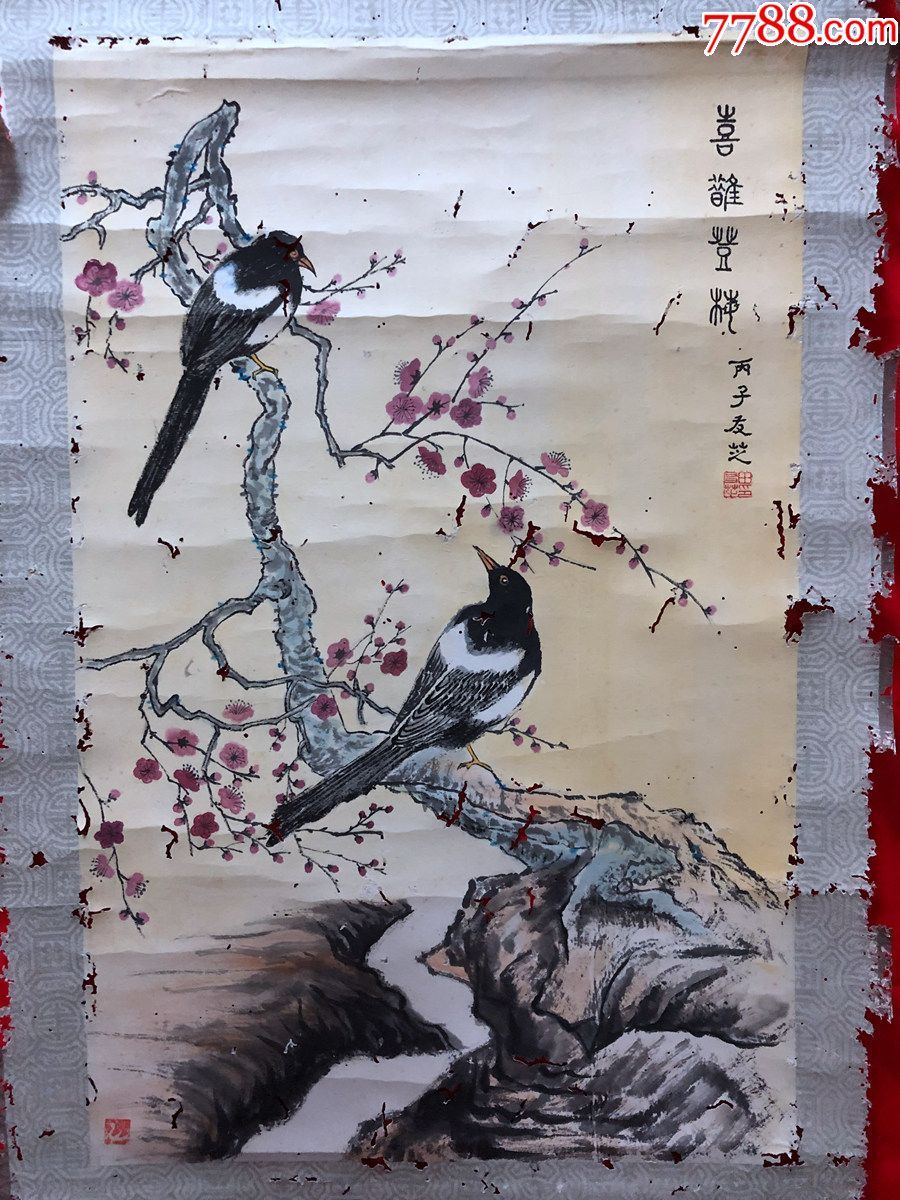 7788.com
喜鵲登梅
丙子友芝